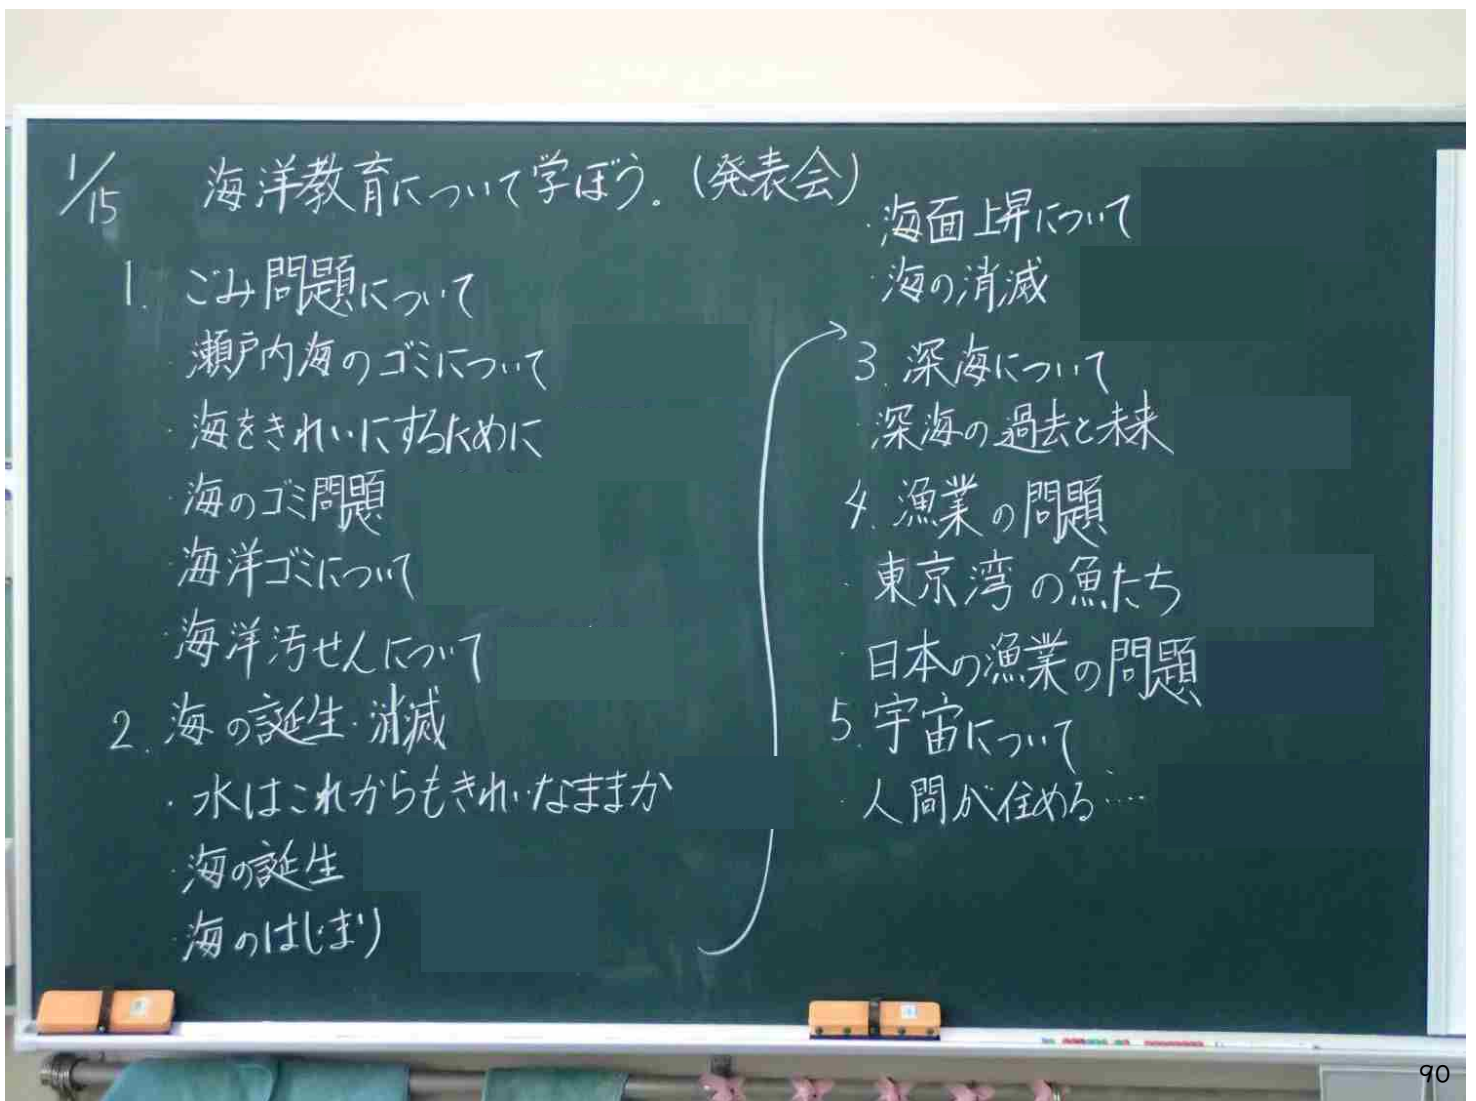 1/15 海洋教育について学ぼう。(発表会)
1. ごみ問題について
・瀬戸内海のゴミについて
・海をきれいにするために
・海のゴミ問題
・海洋ゴミについて
・海洋汚せんについて
2. 海の誕生・消滅
・水はこれからもきれいなままか
・海の誕生
・海のはじまり
・海面上昇について
・海の消滅
3. 深海について
・深海の過去と未来
4. 漁業の問題
・東京湾の魚たち
・日本の漁業の問題
5. 宇宙について
・人間が住める‥‥
90